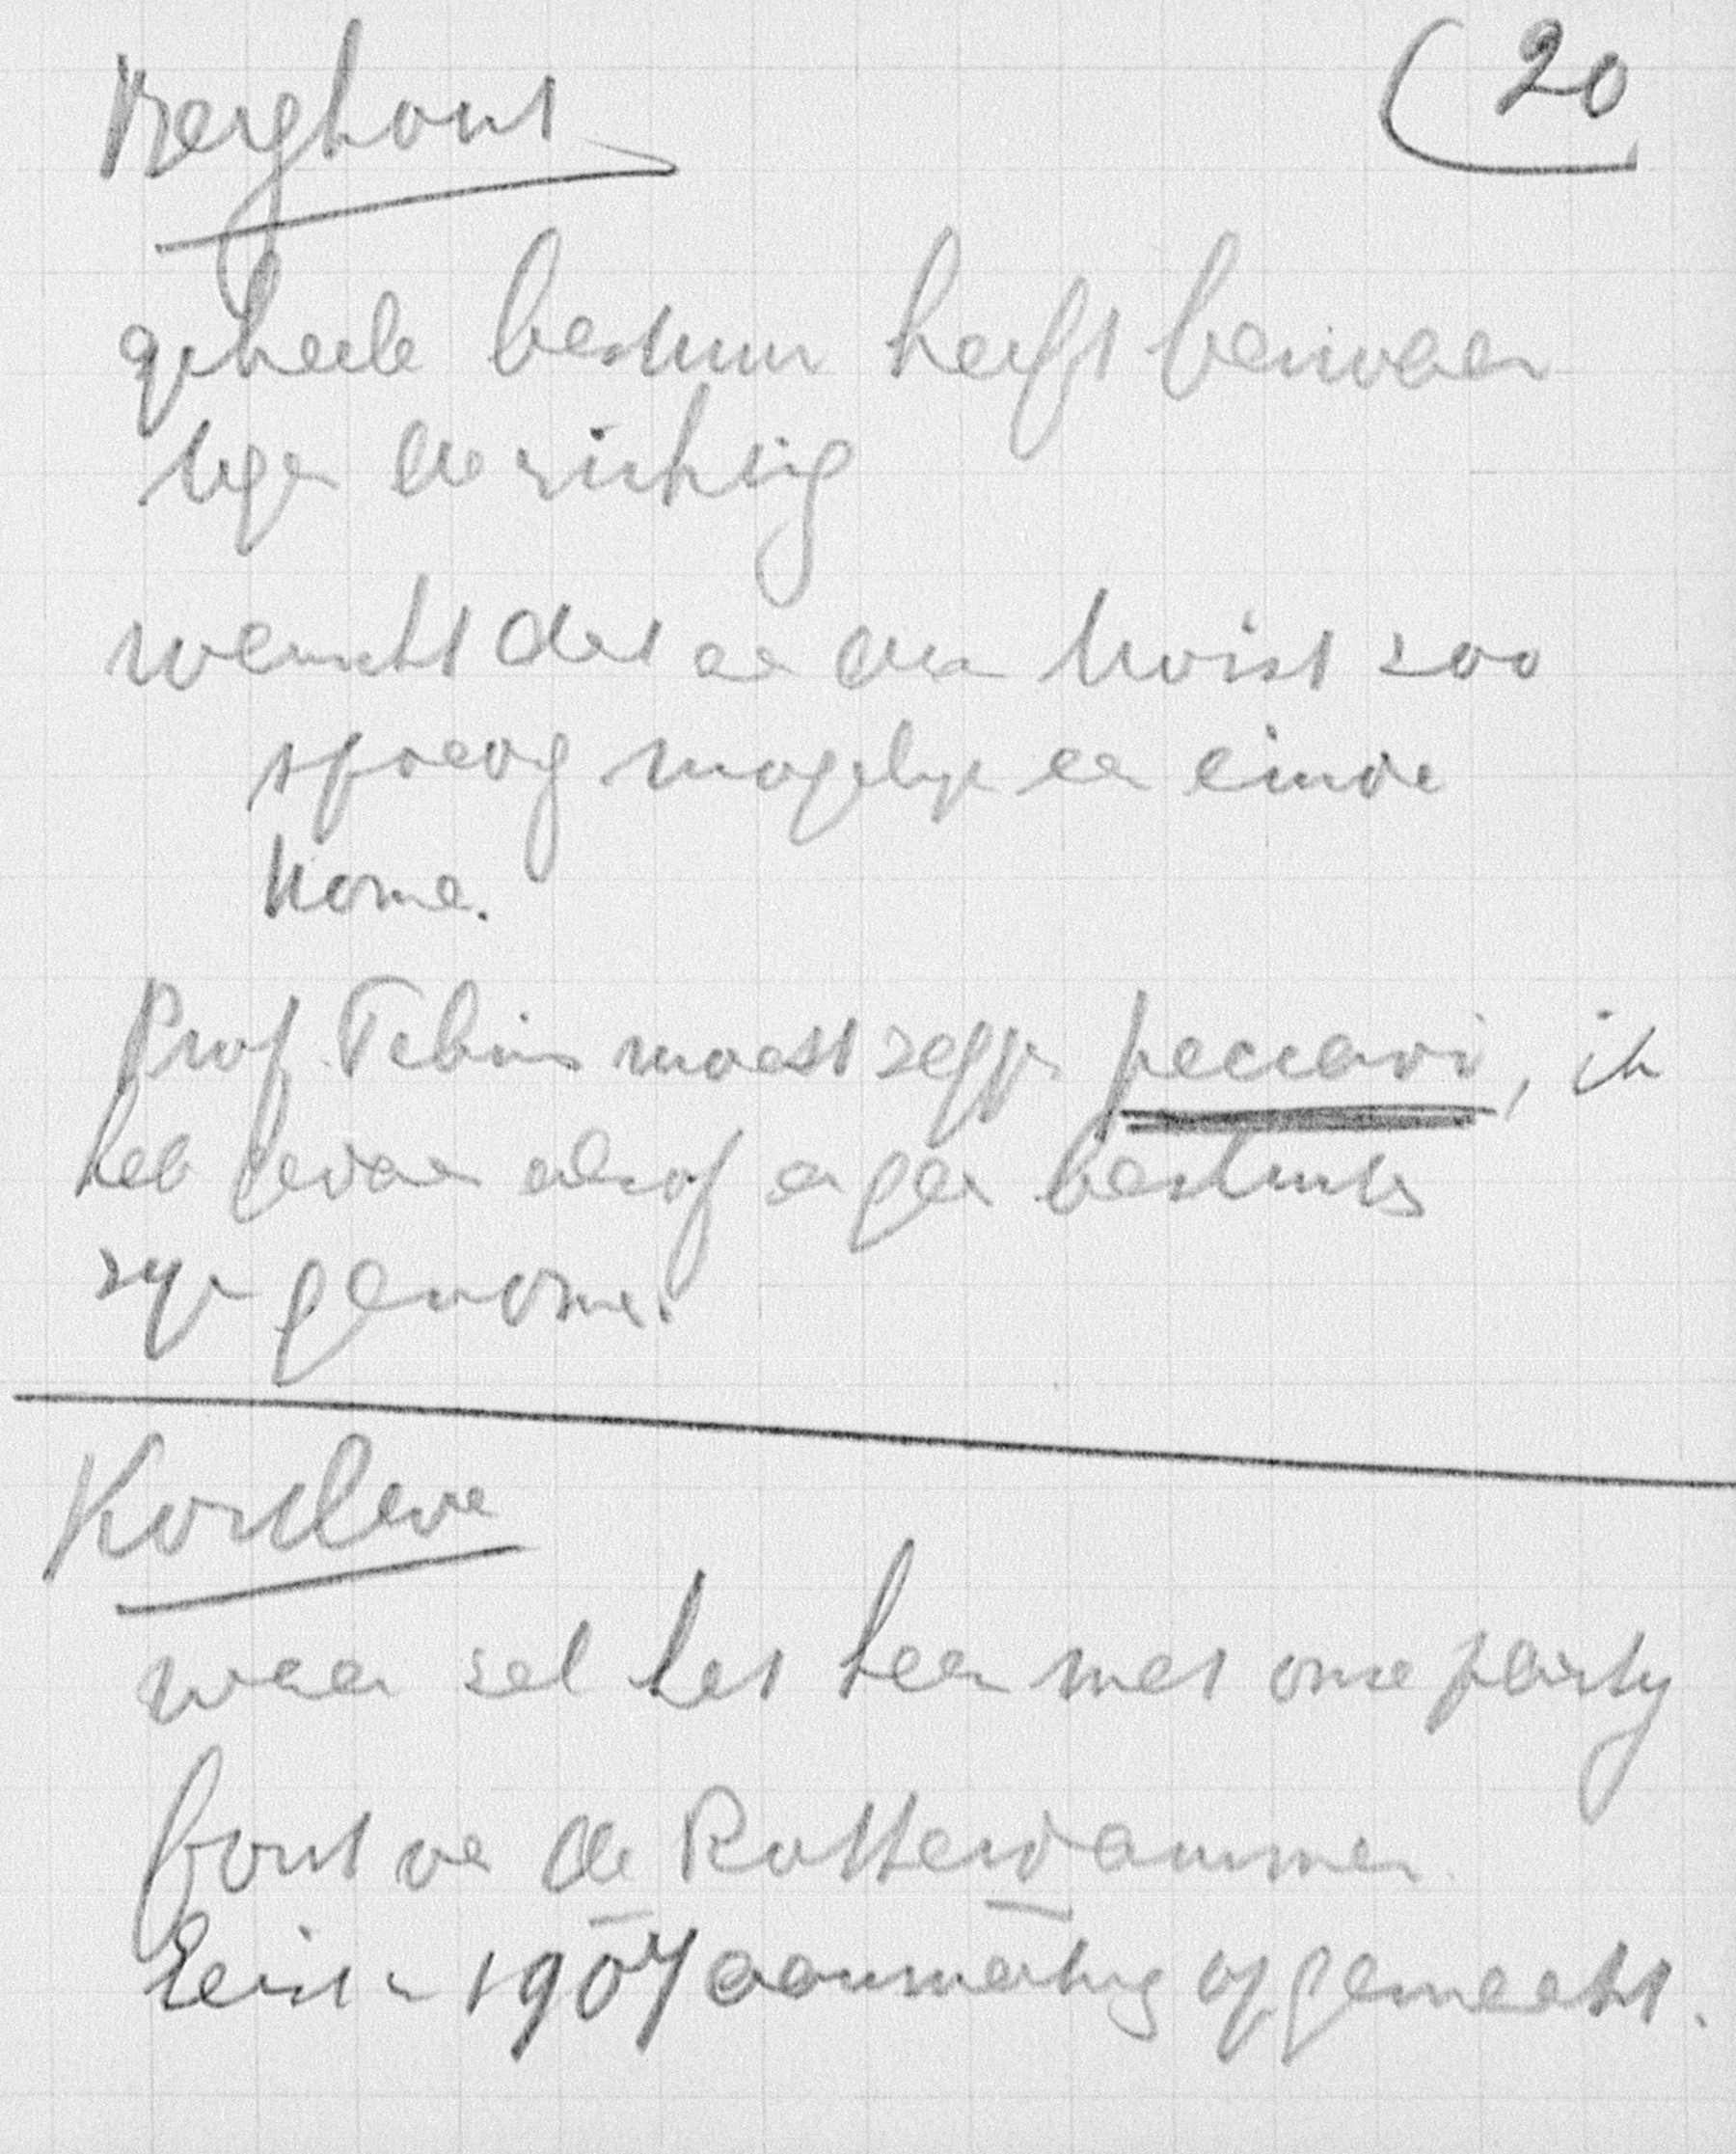 Berghout
(20
geheele bestuur heeft bezwaar
tege de richtig
wenscht dat er aan twist zoo
spoedig mogelijk een einde
kome.
Prof. Fabius moest zegge peccavi, ik
heb gedaan alsof er gee besluits
zijn genome.
Kortleve
waar zal het heen met onze partij
fout va de Rotterdammer.
Eerst in 1907 aanmerkig op gemaakt.